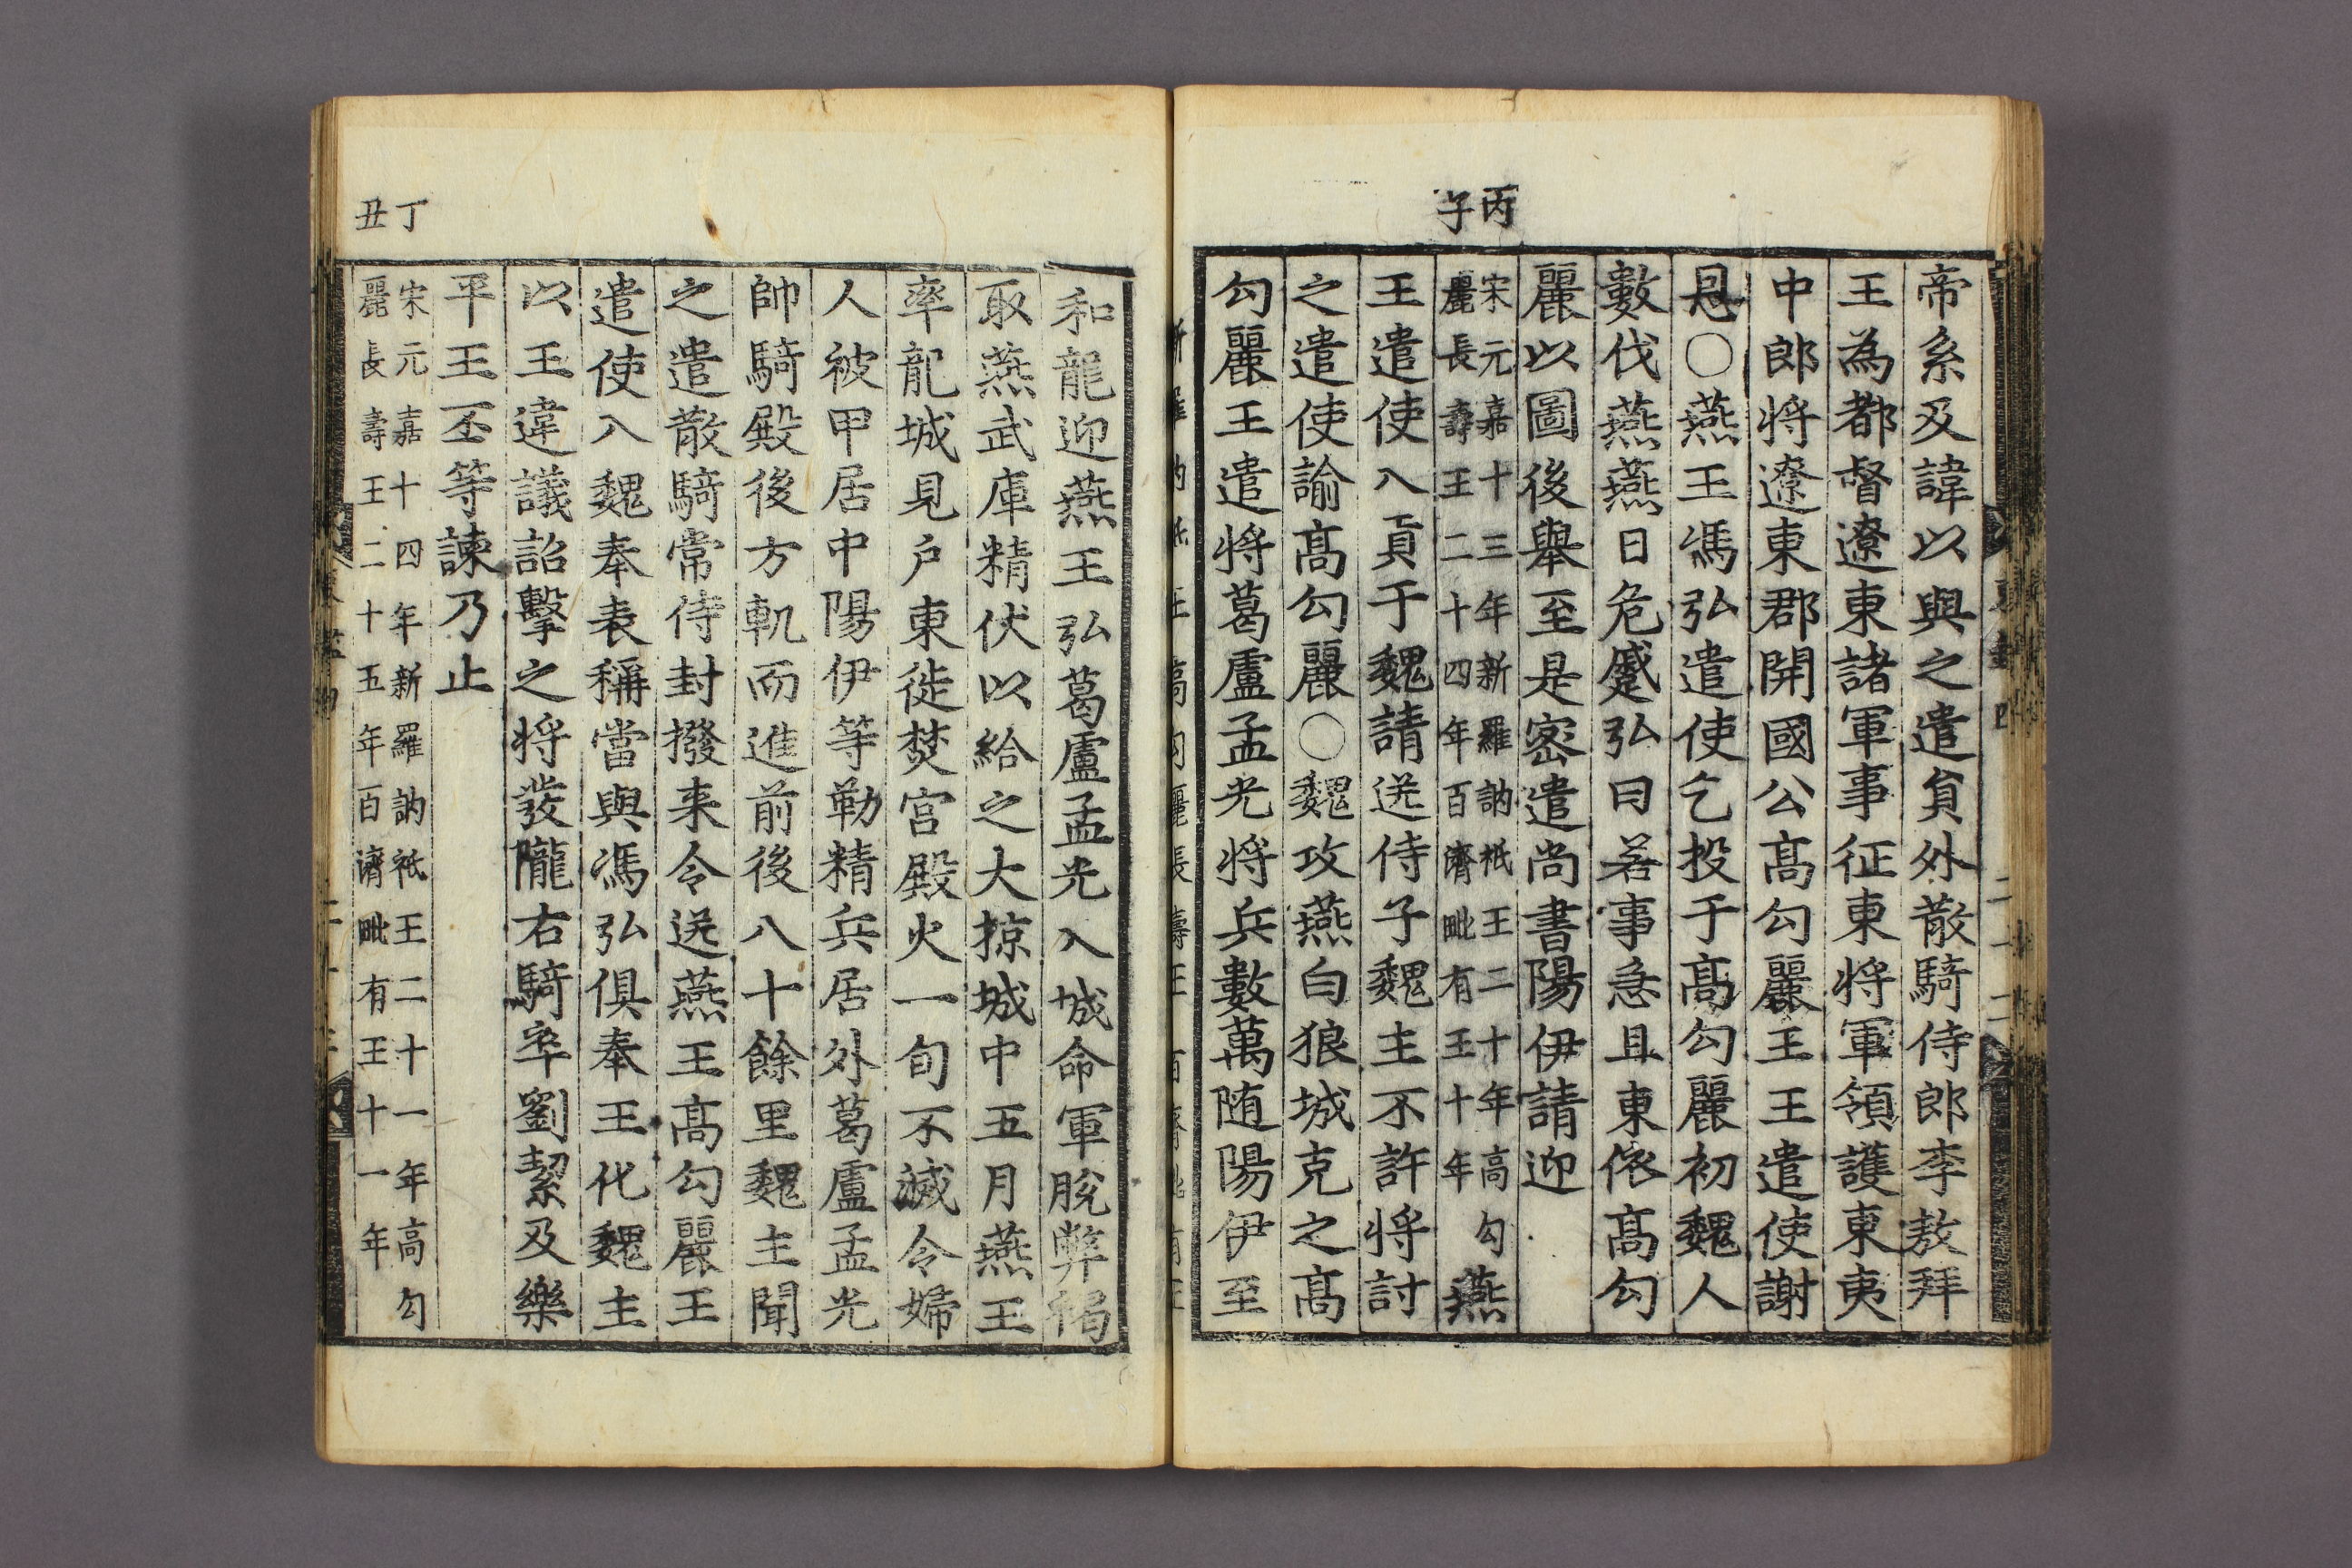 帝系及諱以與之遣貟外散騎侍郎李敖拜
王為都督遼東諸軍事征東將軍領護東夷
中郎將遼東郡開國公高勾麗王王遣使謝
恩○燕王馮弘遣使乞投于高勾麗初魏人
數伐燕燕日危蹙弘曰若事急且東依高勾
麗以圖後舉至是密遣尚書陽伊請迎
丙子
宋元嘉十三年新羅訥祇王二十年高勾
麗長壽王二十四年百濟毗有王十年
燕
王遣使入貢于魏請送侍子魏主不許將討
之遣使諭高勾麗○魏攻燕白狼城克之高
勾麗王遣將葛盧孟光將兵數萬随陽伊至
和龍迎燕王弘葛盧孟光入城命軍脫弊褐
取燕武庫精仗以給之大掠城中五月燕王
率龍城見户東徙焚宮殿火一旬不滅令婦
人被甲居中陽伊等勒精兵居外葛盧孟光
帥騎殿後方軌而進前後八十餘里魏主聞
之遣散騎常侍封撥来令送燕王高勾麗王
遣使入魏奉表稱當與馮弘俱奉王化魏主
以王違議詔擊之將發隴右騎卒劉絜及樂
平王丕等諫乃止
丁丑
宋元嘉十四年新羅訥祇王二十一年高勾
麗長壽王二十五年百濟毗有王十一年